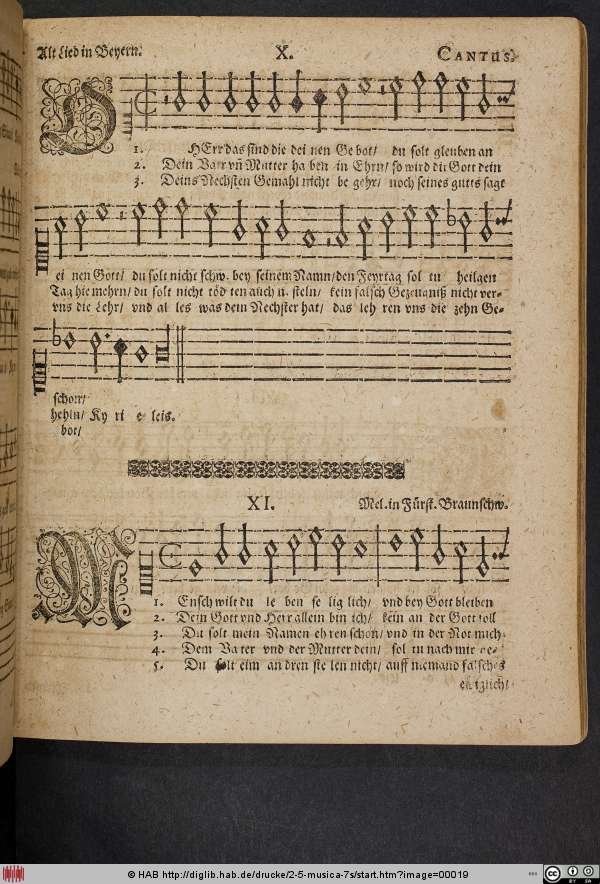 Alt Lied in Beyern. X. CANTUS.
1. HErr das sind die dei nen Ge bot/ du solt gleuben an
2. Dein Vater vñ Mutter ha ben in Ehrn/ so wird dir Gott dein
3. Deins Nechsten Gemahl nicht be gehr/ noch seines gutts sagt
ei nen Gott/ du solt nicht schw. bey seinem Namn/den Feyrtag sol tu heilgen
Tag hie mehrn/ du solt nicht töd ten auch n. steln/ kein falsch Gezeugniß nicht ver-
vns die Lehr/ vnd al les was dein Nechster hat/ das leh ren vns die zehn Ge-
schon/
hehln/ Ky ri e leis.
bot/
XI. Mel. in Fürst. Braunschw.
1. Ensch wilt du le ben se lig lich/ vnd bey Gott bleiben
2. Dein Gott vnd Herr allein bin ich/ kein an der Gott soll
3. Du solt mein Namen eh ren schon/ vnd in der Not mich
4. Dem Va ter vnd der Mutter dein/ sol tu nach mir ge-
5. Du solt eim an dren ste len nicht/ auff niemand falsches
© HAB http://diglib.hab.de/drucke/2-5-musica-7s/start.htm?image=00019